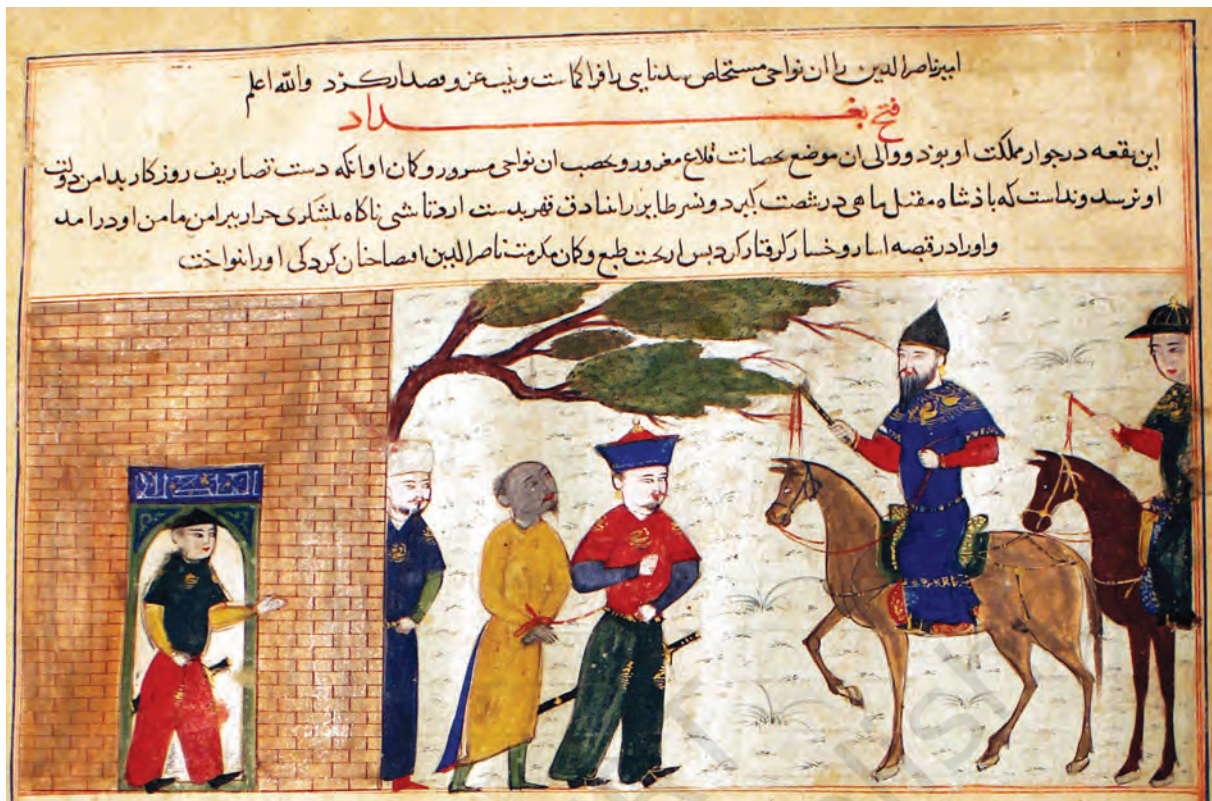 امیر ناصر الدین را ان نواحی مستخلص شد نایبی را فرا کماشت و قصدار کرد والله اعلم
فتح بغداد
این بقعه در جوار مملکت او بود و والی ان موضع بحصانت قلاع مغرور و بخصب ان نواحی مسرور و کمان او انکه دست تصاریف روزکار بدامن دولت
او نرسد و ندانست که باذشاه مقبل ماهی در شصت کیرد و نسر طایر را قهر بدست ارد تا شبی ناکاه بلشکری جرار بیرامن مامن او در امد
و او را در قبضه اسار و خسار کرفتار کرد بس طبع و مکرمت ناصر الدین کرد کی او را بنواخت